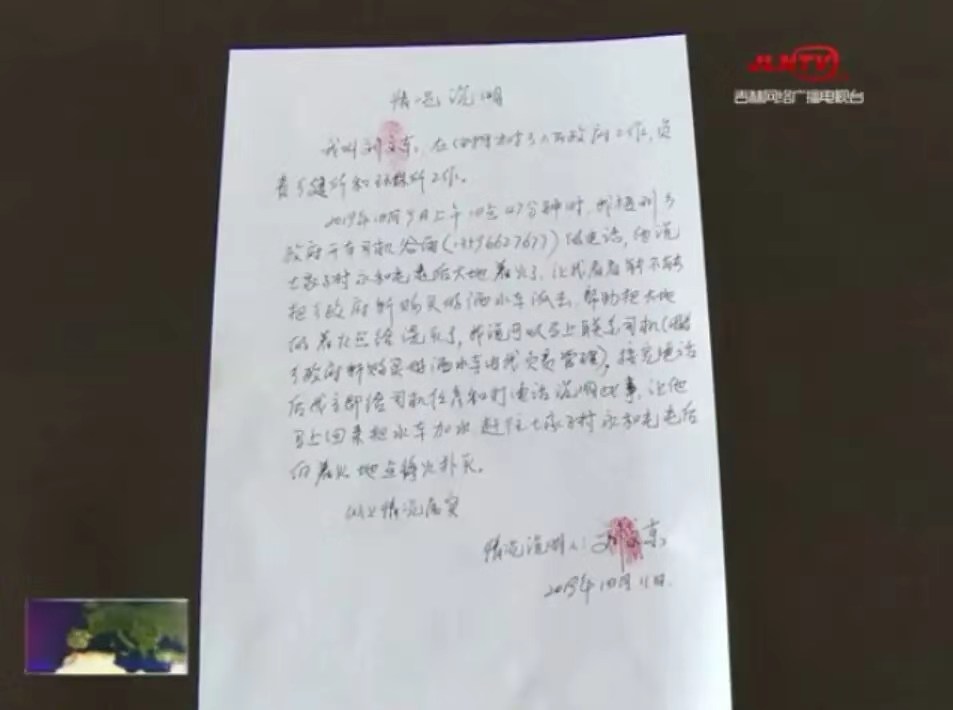 JLNTV
吉林网络广播电视台
情况说明
我叫刘文东,在 乡人民政府工作,负
责乡建所和环保所工作。
2019年10月9日上午10点47分钟时,我接到乡
政府干有司机 电话,他说
七家子村永和屯屯后大地着火了,让我看看能不能
把乡政府新购买的洒水车派去,帮助把大地
的着火点给浇灭了,我说可以马上联系司机(
乡政府新购买的洒水车由我负责管理)。接完电话
后我立即给司机任彦和打电话说明此事,让他
马上回来把水车加水赶往七家子村永和屯屯后
的着火地点将火扑灭。
以上情况属实
情况说明人:刘文东
2019年10月11日.